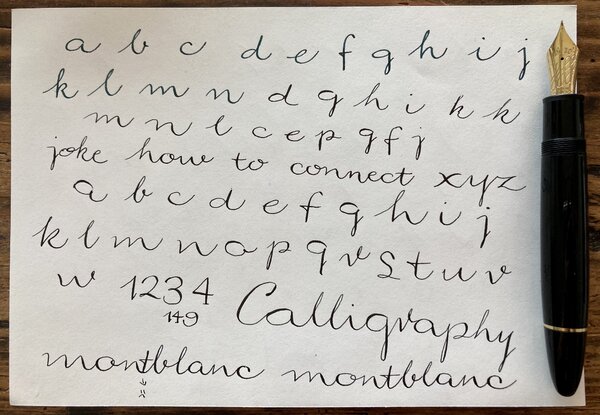 a b c d e f g h i j
k l m n d g h i k k
m n l c e p g f j
joke how to connect xyz
a b c d e f g h i j
k l m n o p q r s t u v
w 1 2 3 4
149
Calligraphy
montblanc montblanc